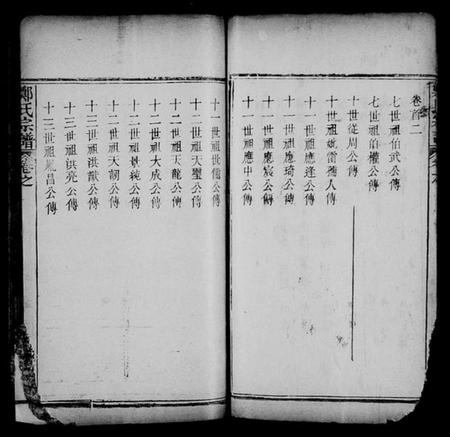 卷首二
七世祖伯武公傳
七世祖伯權公傳
十世從周公傳
十一世祖妣雷孺人傳
十一世祖應逢公傳
十一世祖應琦公傳
十一世祖應宸公傳
十一世祖應中公傳
十一世祖世儒公傳
十二世祖天璽公傳
十二世祖天龍公傳
十二世祖大成公傳
十二世祖景純公傳
十二世祖天韌公傳
十三世祖洪猷公傳
十三世祖洪亮公傳
十三世祖鳳昌公傳
鄭氏宗譜 卷之